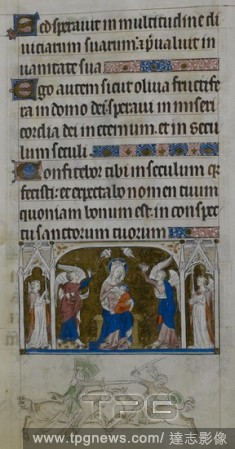 sed sperauit in multitudine di
uiciarum suarum: et preualuit in
uanitate sua
Ego autem sicut oliua fructifera
in domo dei: speraui in miseri
cordia dei in eternum et in secu
lum seculi
Confitebor tibi in seculum quia
fecisti: et expectabo nomen tuum
quoniam bonum est in conspec
tu sanctorum tuorum
TPG
www.tpgnews.com / 達志影像